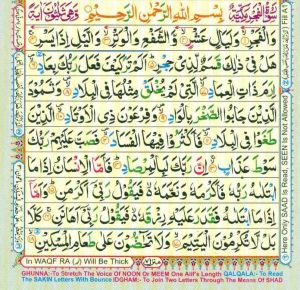 سُوْرَةُ الْفَجْرِ مَكِّيَّةٌ
بِسْمِ اللّٰهِ الرَّحْمٰنِ الرَّحِيْمِ
وَالْفَجْرِ ۙ وَلَيَالٍ عَشْرٍ ۙ وَّالشَّفْعِ وَالْوَتْرِ ۙ وَالَّيْلِ اِذَا يَسْرِ ۚ
هَلْ فِيْ ذٰلِكَ قَسَمٌ لِّذِيْ حِجْرٍ ؕ اَلَمْ تَرَ كَيْفَ فَعَلَ رَبُّكَ بِعَادٍ
اِرَمَ ذَاتِ الْعِمَادِ ۙ الَّتِيْ لَمْ يُخْلَقْ مِثْلُهَا فِي الْبِلَادِ ۙ وَثَمُوْدَ
الَّذِيْنَ جَابُوا الصَّخْرَ بِالْوَادِ ۙ وَفِرْعَوْنَ ذِي الْاَوْتَادِ ۙ الَّذِيْنَ
طَغَوْا فِي الْبِلَادِ ۙ فَاَكْثَرُوْا فِيْهَا الْفَسَادَ ۙ فَصَبَّ عَلَيْهِمْ رَبُّكَ
سَوْطَ عَذَابٍ ۚ اِنَّ رَبَّكَ لَبِالْمِرْصَادِ ؕ فَاَمَّا الْاِنْسَانُ اِذَا مَا
ابْتَلٰىهُ رَبُّهٗ فَاَكْرَمَهٗ وَنَعَّمَهٗ ۙ فَيَقُوْلُ رَبِّيْٓ اَكْرَمَنِ ؕ وَاَمَّآ
اِذَا مَا ابْتَلٰىهُ فَقَدَرَ عَلَيْهِ رِزْقَهٗ ۙ فَيَقُوْلُ رَبِّيْٓ اَهَانَنِ ۚ كَلَّا
بَلْ لَّا تُكْرِمُوْنَ الْيَتِيْمَ ۙ وَلَا تَحٰٓضُّوْنَ عَلٰى طَعَامِ الْمِسْكِيْنِ
In WAQF RA (ر) Will Be Thick
منزل
GHUNNA:-To Stretch The Voice Of NOON Or MEEM One Alif's Length QALQALA:-To Read
The SAKIN Letters With Bounce IDGHAM:-To Join Two Letters Through The Means Of SHAD
Here Only SAAD Is Read, SEEN Is Not Read